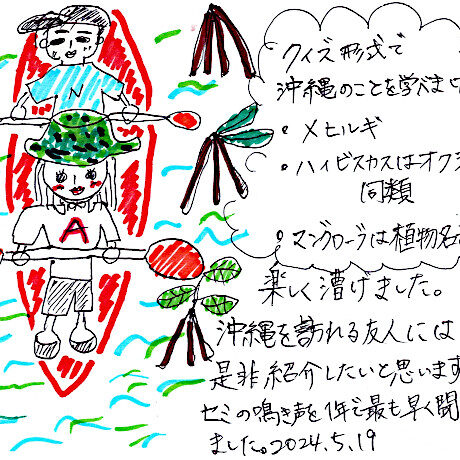 クイズ形式で
沖縄のことを学べまし
・メヒルギ
・ハイビスカスはオクラ
同類
・マングローブは植物名
N
A
楽しく漕げました。
沖縄を訪れる友人には
是非紹介したいと思います
セミの鳴き声を1年で最も早く聞
ました。2024.5.19